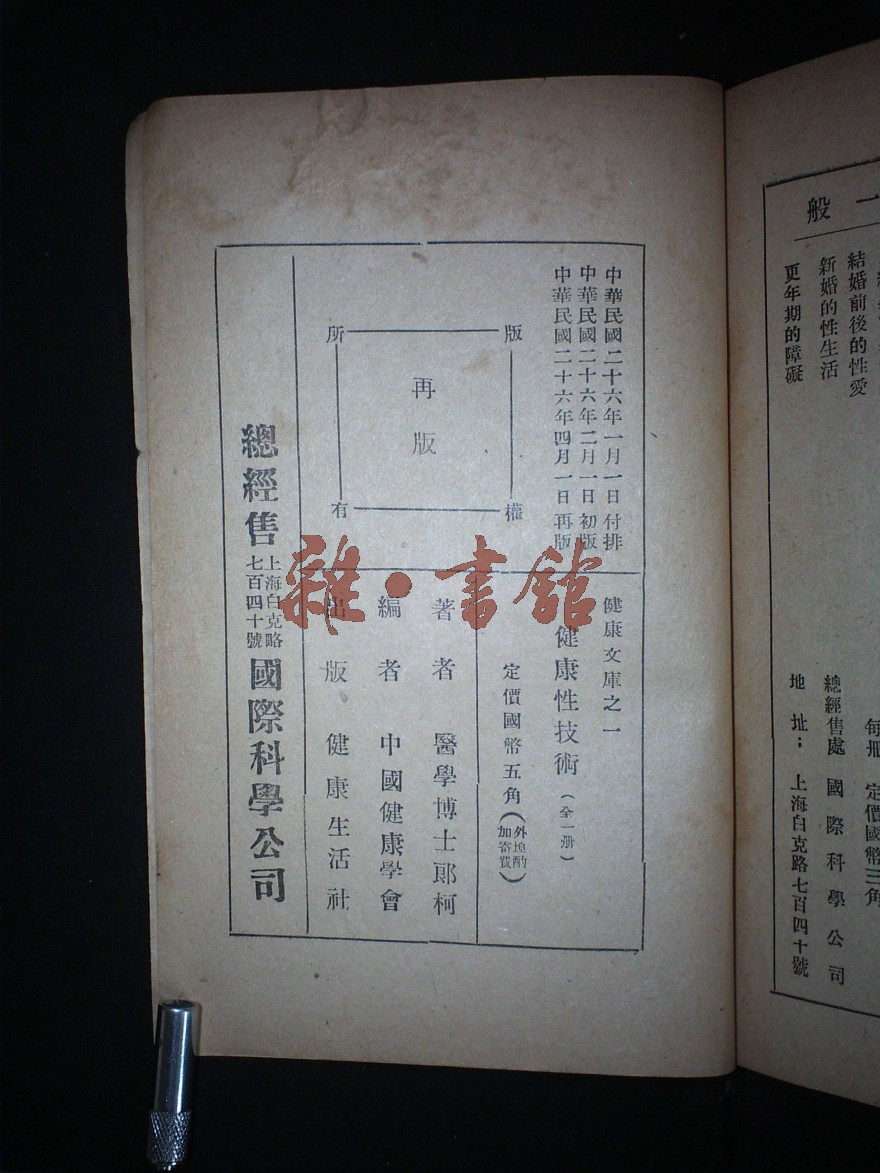 中華民國二十六年一月一日付排
中華民國二十六年二月一日初版
中華民國二十六年四月一日再版
版權所有
再版
健康文庫之一
健康性技術(全一册)
定價國幣五角(外埠酌加寄費)
著者 醫學博士郎柯
編者 中國健康學會
出版 健康生活社
總經售 上海白克略七百四十號 國際科學公司
雜·書館
一般
結婚前後的性愛
新婚的性生活
更年期的障礙
每册 定價國幣三角
總經售處 國際科學公司
地址：上海白克路七百四十號